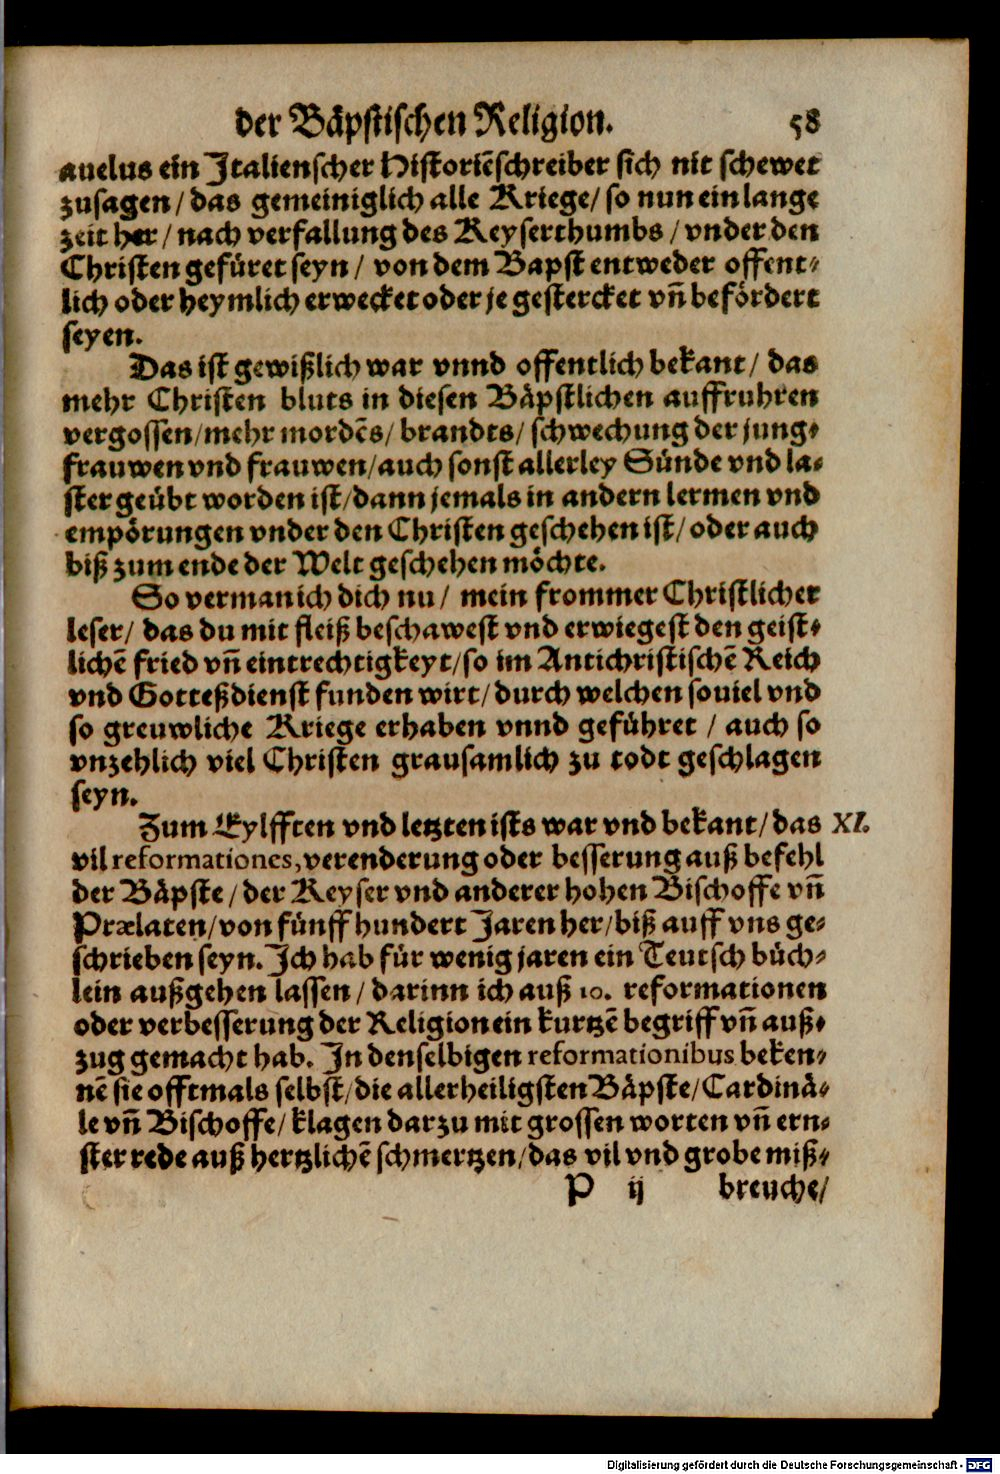 der Bäpstischen Religion. 58
auelus ein Italienscher Historiẽschreiber sich nit schewet
zusagen/ das gemeiniglich alle Kriege/ so nun ein lange
zeit her/ nach verfallung des Keyserthumbs/ vnder den
Christen gefüret seyn/ von dem Bapst entweder offent-
lich oder heymlich erwecket oder je gestercket vñ befördert
seyen.
Das ist gewißlich war vnnd offentlich bekant/ das
mehr Christen bluts in diesen Bäpstlichen auffruhren
vergossen/mehr mordẽs/ brandts/ schwechung der jung-
frauwen vnd frauwen/auch sonst allerley Sünde vnd la-
ster geübt worden ist/dann jemals in andern lermen vnd
empörungen vnder den Christen geschehen ist/ oder auch
biß zum ende der Welt geschehen möchte.
So verman ich dich nu/ mein frommer Christlicher
leser/ das du mit fleiß beschawest vnd erwiegest den geist-
lichẽ fried vñ eintrechtigkeyt/so im Antichristischẽ Reich
vnd Gotteßdienst funden wirt/durch welchen souiel vnd
so greuwliche Kriege erhaben vnnd geführet / auch so
vnzehlich viel Christen grausamlich zu todt geschlagen
seyn.
Zum Eylfften vnd letzten ists war vnd bekant/das XI.
vil reformationes, verenderung oder besserung auß befehl
der Bäpste/ der Keyser vnd anderer hohen Bischoffe vñ
Prælaten/von fünff hundert Jaren her/biß auff vns ge-
schrieben seyn. Ich hab für wenig jaren ein Teutsch büch-
lein außgehen lassen/ darinn ich auß 10. reformationen
oder verbesserung der Religion ein kurtzẽ begriff vñ auß-
zug gemacht hab. In denselbigen reformationibus beken-
nẽ sie offtmals selbst/die allerheiligsten Bäpste/Cardinä-
le vñ Bischoffe/ klagen darzu mit grossen worten vñ ern-
ster rede auß hertzlichẽ schmertzen/das vil vnd grobe miß-
P ij breuche/
Digitalisierung gefördert durch die Deutsche Forschungsgemeinschaft - DFG